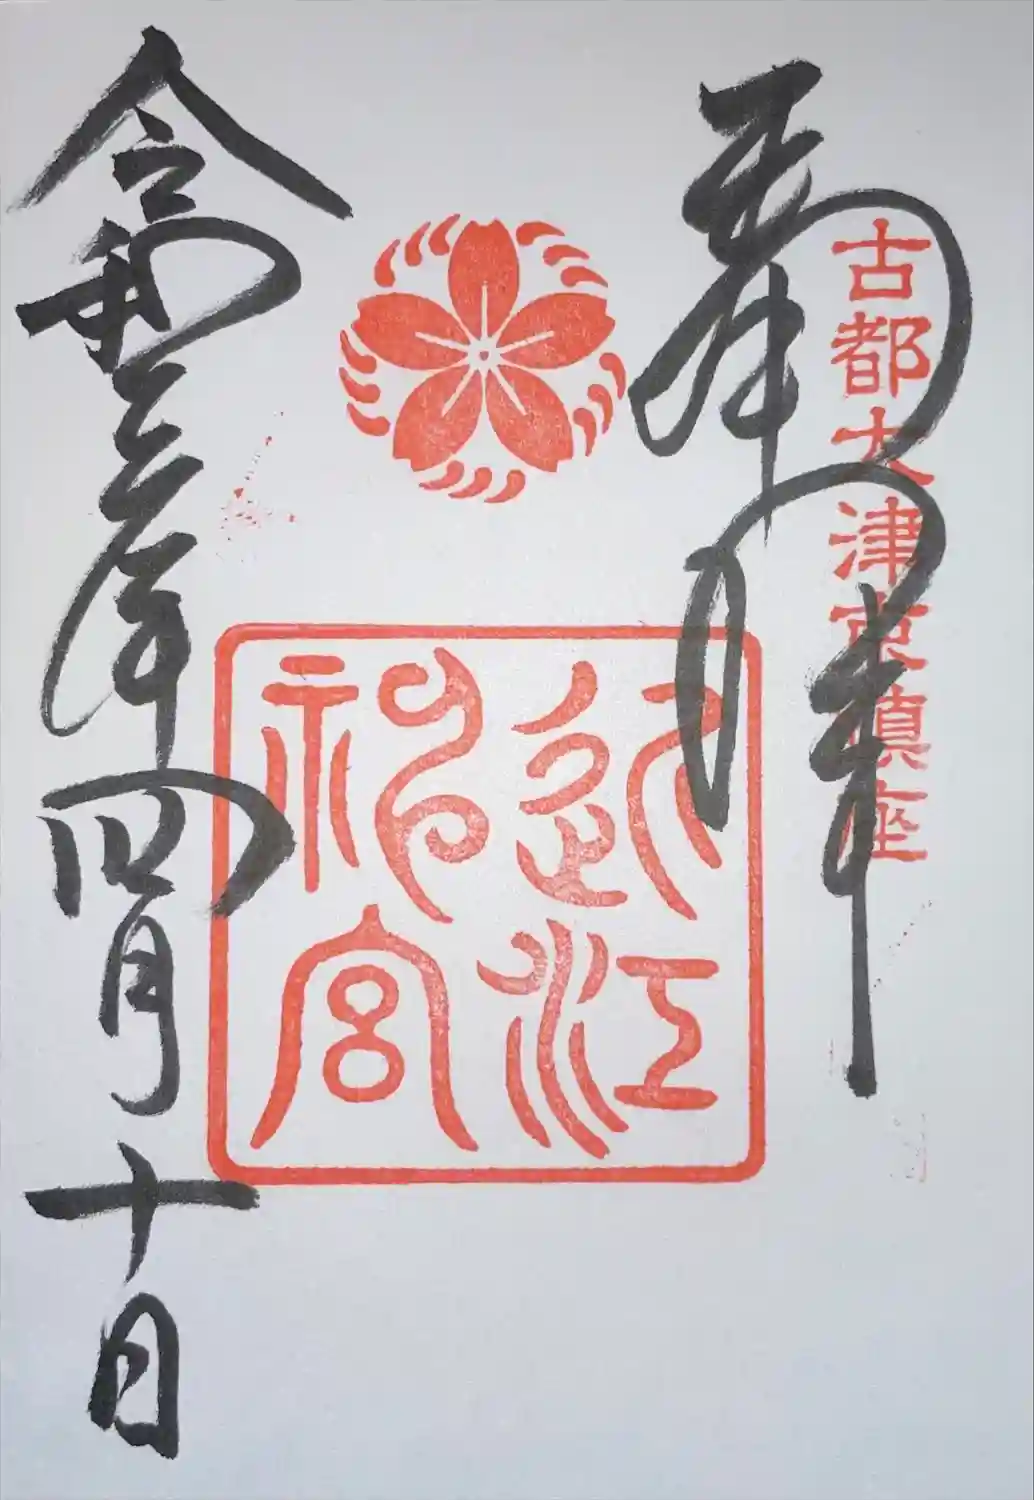 奉拝
古都大津京鎮座
近江
神宮
令和 年四月十日